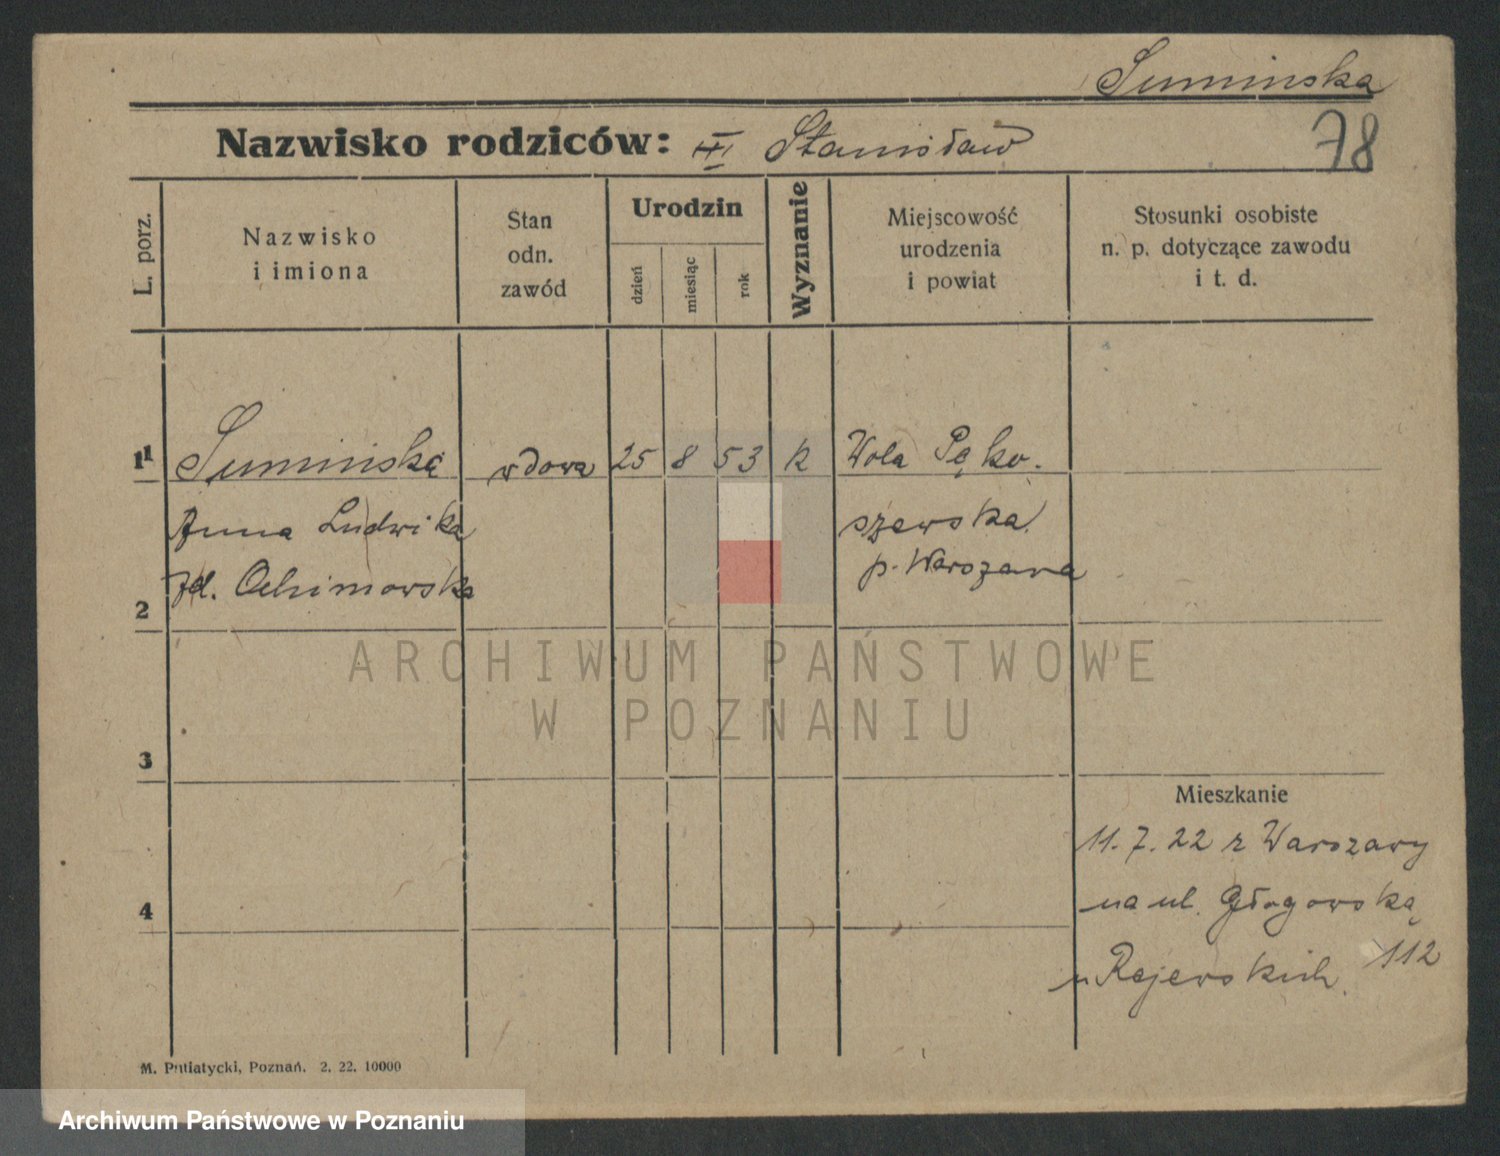 Sumińska
Nazwisko rodziców: Stanisław 78
L. porz.
Nazwisko
i imiona
Stan
odn.
zawód
Urodzin
dzień
miesiąc
rok
Wyznanie
Miejscowość
urodzenia
i powiat
Stosunki osobiste
n. p. dotyczące zawodu
i t. d.
1 Sumińska wdowa 25 8 53 k Wola Pęko.
Anna Ludwika szewska
p. Warszawa
2 zd.
3
Mieszkanie
11. 7. 22 z Warszawy
4 na ul. Głogowską
112
u Rejewskich.
M. Putiatycki, Poznań. 2. 22. 10000
ARCHIWUM PAŃSTWOWE
W POZNANIU
Archiwum Państwowe w Poznaniu